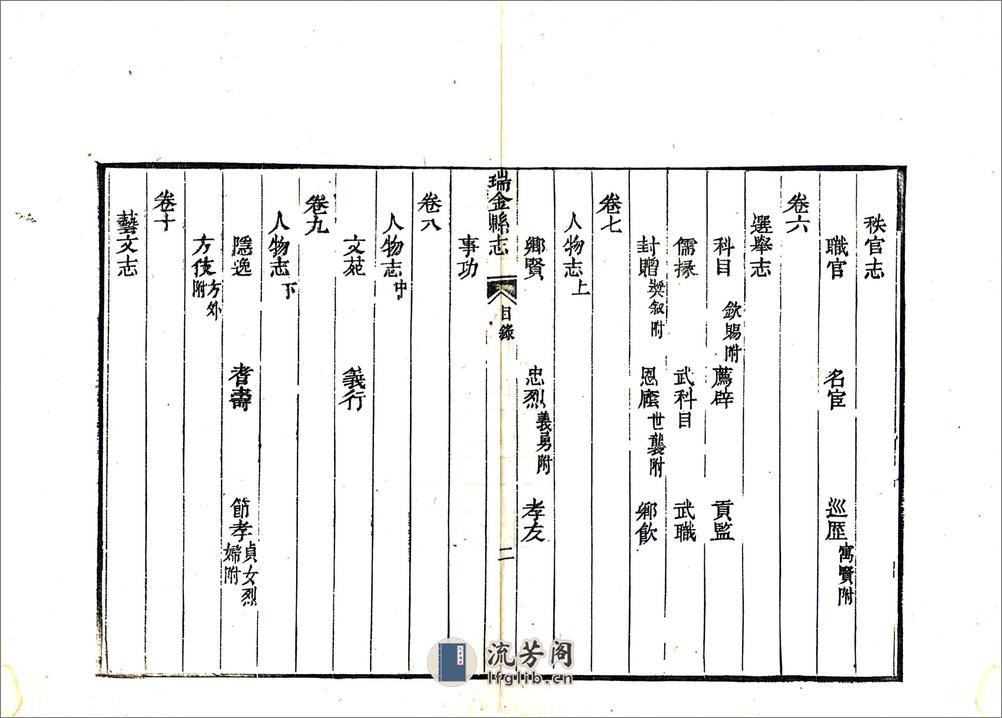 秩官志
職官 名宦 巡歴寓賢附
卷六
選舉志
科目欽賜附 薦辟 貢監
儒掾 武科目 武職
封贈奬叙附 恩廕世襲附 鄉飲
卷七
人物志上
鄉賢 忠烈義勇附 孝友
瑞金縣志 目錄 二
事功
卷八
人物志中
文苑 義行
卷九
人物志下
隱逸 耆壽 節孝貞女烈婦附
方伎方外附
卷十
藝文志
流芳阁
lfglib.cn